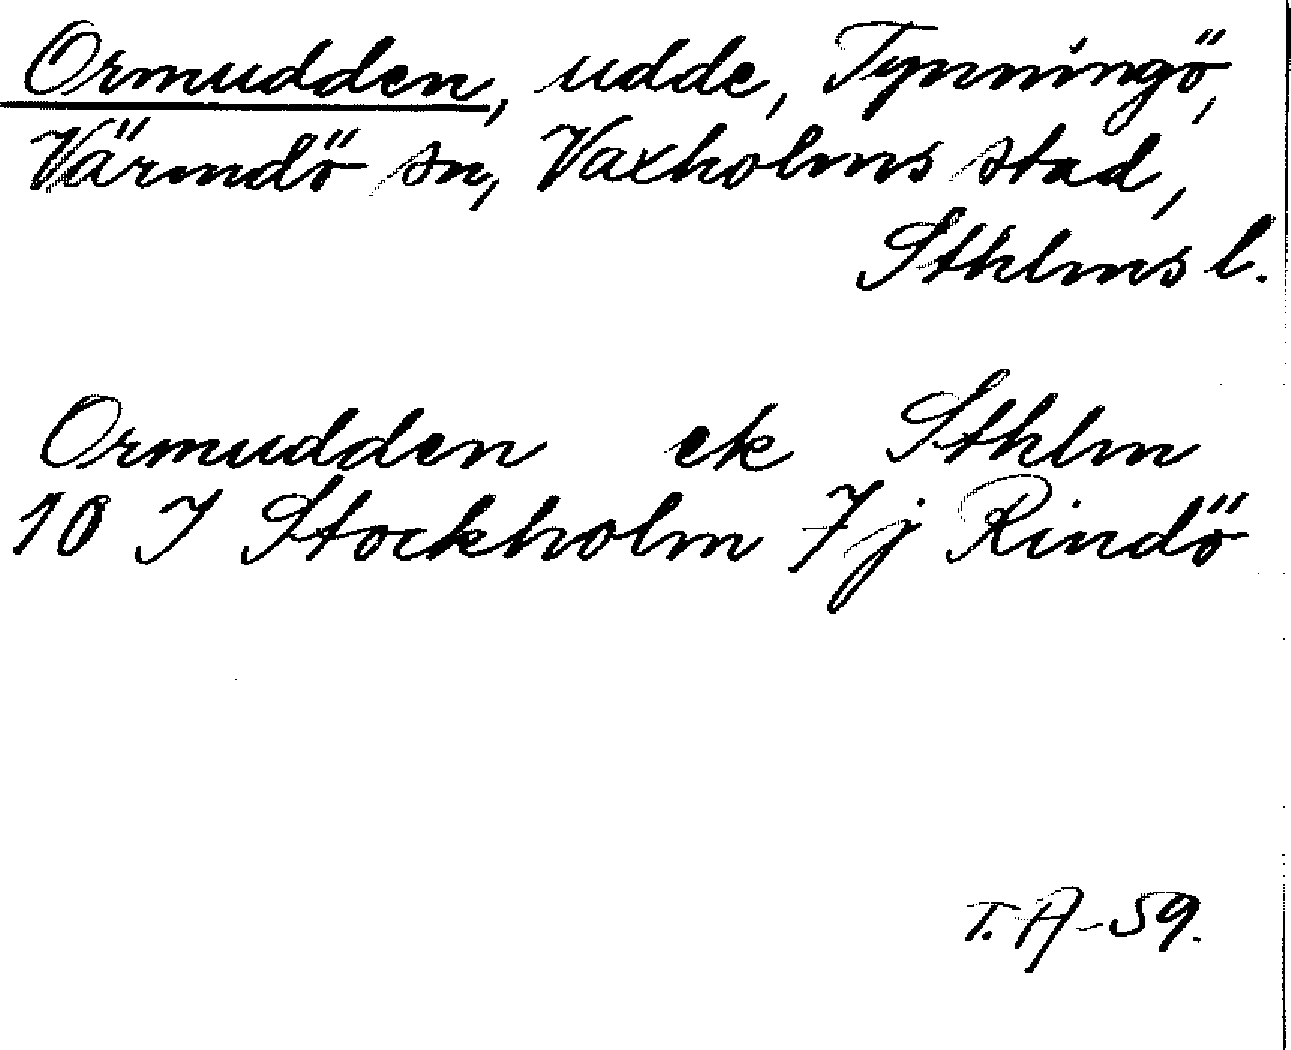 Ormudden, udde, Tynningö,
Värmdö sn, Vaxholms stad,
Sthlms l.
Ormudden ek Sthlm
10 I Stockholm 7j Rindö
T. A-59.